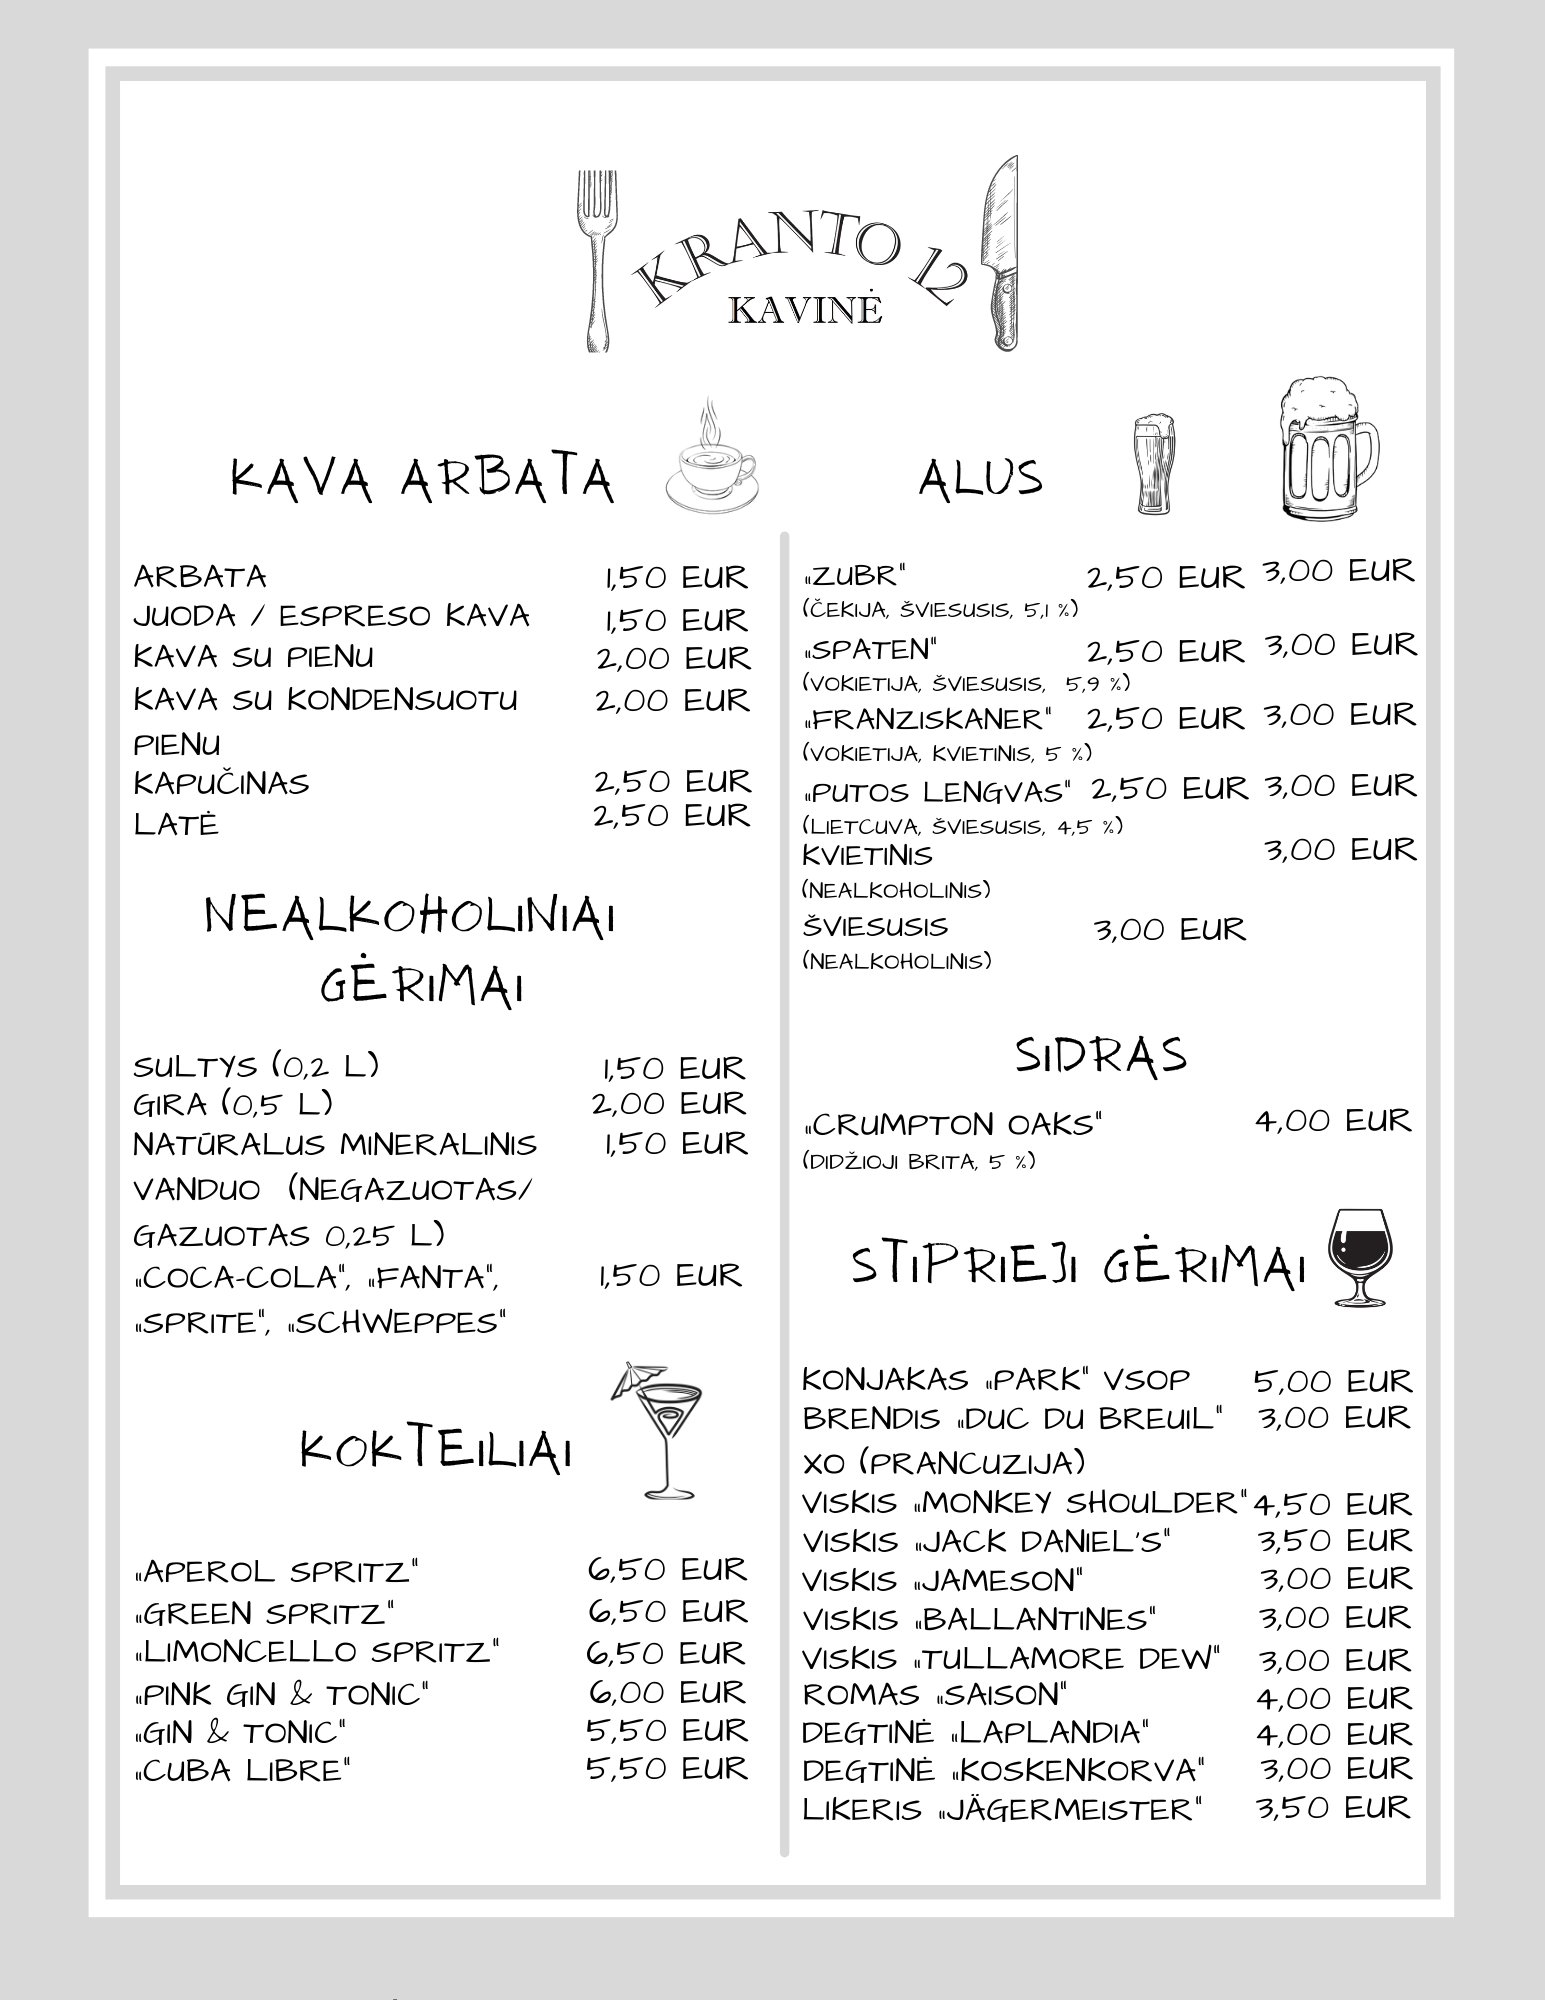 KRANTO 12
KAVINĖ
KAVA ARBATA
ARBATA 1,50 EUR
JUODA / ESPRESO KAVA 1,50 EUR
KAVA SU PIENU 2,00 EUR
KAVA SU KONDENSUOTU 2,00 EUR
PIENU
KAPUČINAS 2,50 EUR
LATĖ 2,50 EUR
NEALKOHOLINIAI
GĖRIMAI
SULTYS (0,2 L) 1,50 EUR
GIRA (0,5 L) 2,00 EUR
NATŪRALUS MINERALINIS 1,50 EUR
VANDUO (NEGAZUOTAS/
GAZUOTAS 0,25 L)
„COCA-COLA", „FANTA", 1,50 EUR
„SPRITE", „SCHWEPPES"
KOKTEILIAI
„APEROL SPRITZ" 6,50 EUR
„GREEN SPRITZ" 6,50 EUR
„LIMONCELLO SPRITZ" 6,50 EUR
„PINK GIN & TONIC" 6,00 EUR
„GIN & TONIC" 5,50 EUR
„CUBA LIBRE" 5,50 EUR
ALUS
„ZUBR" 2,50 EUR 3,00 EUR
(ČEKIJA, ŠVIESUSIS, 5,1 %)
„SPATEN" 2,50 EUR 3,00 EUR
(VOKIETIJA, ŠVIESUSIS, 5,9 %)
„FRANZISKANER" 2,50 EUR 3,00 EUR
(VOKIETIJA, KVIETINIS, 5 %)
„PUTOS LENGVAS" 2,50 EUR 3,00 EUR
(LIETCUVA, ŠVIESUSIS, 4,5 %)
KVIETINIS 3,00 EUR
(NEALKOHOLINIS)
ŠVIESUSIS 3,00 EUR
(NEALKOHOLINIS)
SIDRAS
„CRUMPTON OAKS" 4,00 EUR
(DIDŽIOJI BRITA, 5 %)
STIPRIEJI GĖRIMAI
KONJAKAS „PARK" VSOP 5,00 EUR
BRENDIS „DUC DU BREUIL" 3,00 EUR
XO (PRANCUZIJA)
VISKIS „MONKEY SHOULDER" 4,50 EUR
VISKIS „JACK DANIEL'S" 3,50 EUR
VISKIS „JAMESON" 3,00 EUR
VISKIS „BALLANTINES" 3,00 EUR
VISKIS „TULLAMORE DEW" 3,00 EUR
ROMAS „SAISON" 4,00 EUR
DEGTINĖ „LAPLANDIA" 4,00 EUR
DEGTINĖ „KOSKENKORVA" 3,00 EUR
LIKERIS „JÄGERMEISTER" 3,50 EUR